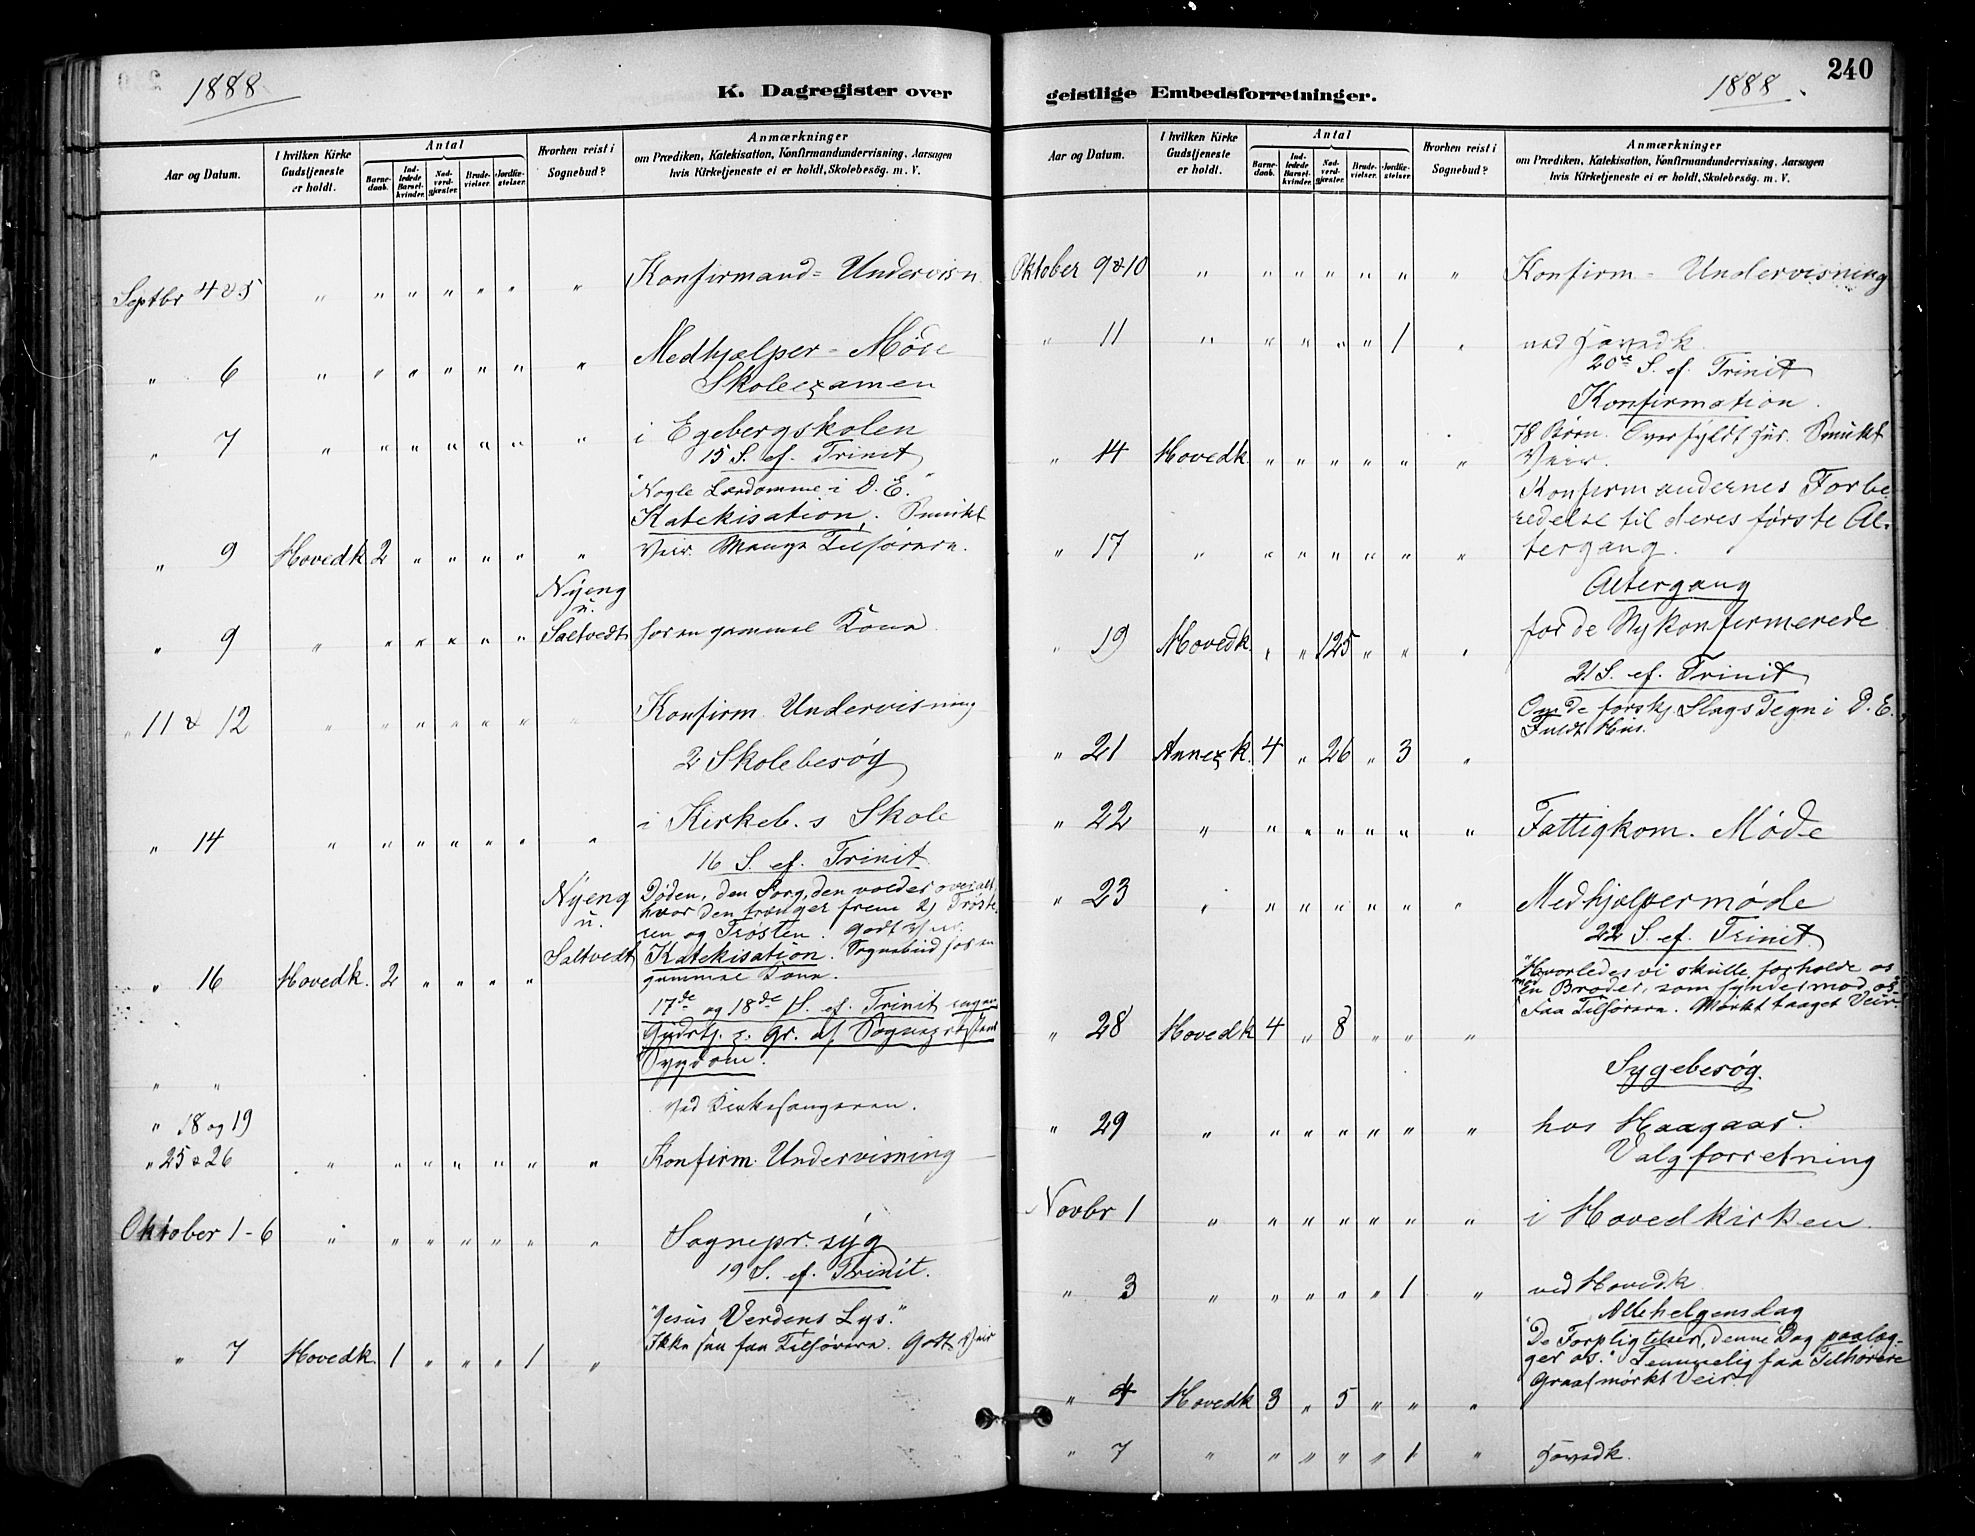 1888
K. Dagregister over
Aar og Datum.
I hvilken Kirke Gudstjeneste er holdt.
Antal
Barnedaab.
Indledede Barselkvinder.
Nadverdgjæster.
Brudevielser.
Jordfæstelser.
Hvorhen reist i Sognebud?
Anmærkninger
om Prædiken, Katekisation, Konfirmandundervisning, Aarsagen
hvis Kirketjeneste ei er holdt, Skolebesög. m. V.
Septbr 4 & 5 " " " " " " " Konfirmand = Undervisn.
" 6 " " " " " " " Medhjælper = Møde
Skoleexamen
" 7 " " " " " " " i Egebergskolen
15 S. ef. Trinit
"Nogle Lærdomme i D. E."
Katekisation. Smukt
" 9 Hovedk 2 " " " " " Veir. Mange Tilhørere.
Nyeng
u.
" 9 " " " " " " Saltvedt hos en gammel Kone.
" 11 & 12 " " " " " " " Konfirm. Undervisning
2 Skolebesøg
" 14 " " " " " " " i Kirkeb. s Skole
16 S. ef. Trinit
Nyeng Døden, den Sorg, den volder overalt,
hvor den trænger frem 2) Trøste-
u. ren og Trøsten. Godt Veir.
Saltvedt Katekisation. Sognebud hos en
" 16 Hovedk. 2 " " " " gammel Kone.
17de og 18de S. ef. Trinit ingen
Gudstj. p. Gr. af Sognepræstens
Sygdom.
" "
ved Kirkesangeren.
" 18 og 19
" 25 & 26 " " " " " " " Konfirm. Undervisning
Oktober 1-6 " " " " " " " Sognepr. syg
19 S. ef. Trinit.
"Jesus Verdens Lys."
Ikke saa faa Tilhørere. Godt Veir
" 7 Hovedk. 1 " " " 1 "
240
1888
geistlige Embedsforretninger.
Aar og Datum.
I hvilken Kirke Gudstjeneste er holdt.
Antal
Barnedaab.
Indledede Barselkvinder.
Nadverdgjæster.
Brudevielser.
Jordfæstelser.
Hvorhen reist i Sognebud?
Anmærkninger
om Prædiken, Katekisation, Konfirmandundervisning, Aarsagen
hvis Kirketjeneste ei er holdt, Skolebesög. m. V.
Oktober 9 & 10 " " " " " " " Konfirm = Undervisning
" 11 " " " " " 1 " ved Hovedk
20de S. ef. Trinit
Konfirmation.
78 Børn. Overfyldt Hus. Smukt
" 14 Hovedk. " " " " " " Veir.
Konfirmandernes Forbe-
redelse til deres første Al-
" 17 " " " " " " " tergang.
Altergang
" 19 Hovedk. " " 125 " " " for de Nykonfirmerede
21 S. ef. Trinit
Om de forskj. Slags Tegn i D. E.
Fuldt Hus.
" 21 Annexk. 4 " 26 " 3 "
" 22 " " " " " " " Fattigkom. Møde
" 23 " " " " " " " Medhjælpermøde
22 S. ef. Trinit.
"Hvorledes vi skulle forholde os
mod en Broder, som synder mod os."
Faa Tilhørere. Mørkt taaget Veir.
" 28 Hovedk 4 " 8 " " "
Sygebesøg.
" 29 " " " " " " " hos Haagaas.
Valgforretning
Novbr 1 " " " " " " " i Hovedkirken.
" 3 " " " " " 1 " ved Hovedk
Allehelgensdag
"De Forpligtelser, denne Dag paalæg-
ger os." Temmelig faa Tilhørere
Graat mørkt Veir.
" 4 Hovedk 3 " 5 " " "
" 7 " " " " " 1 " Hovedk.